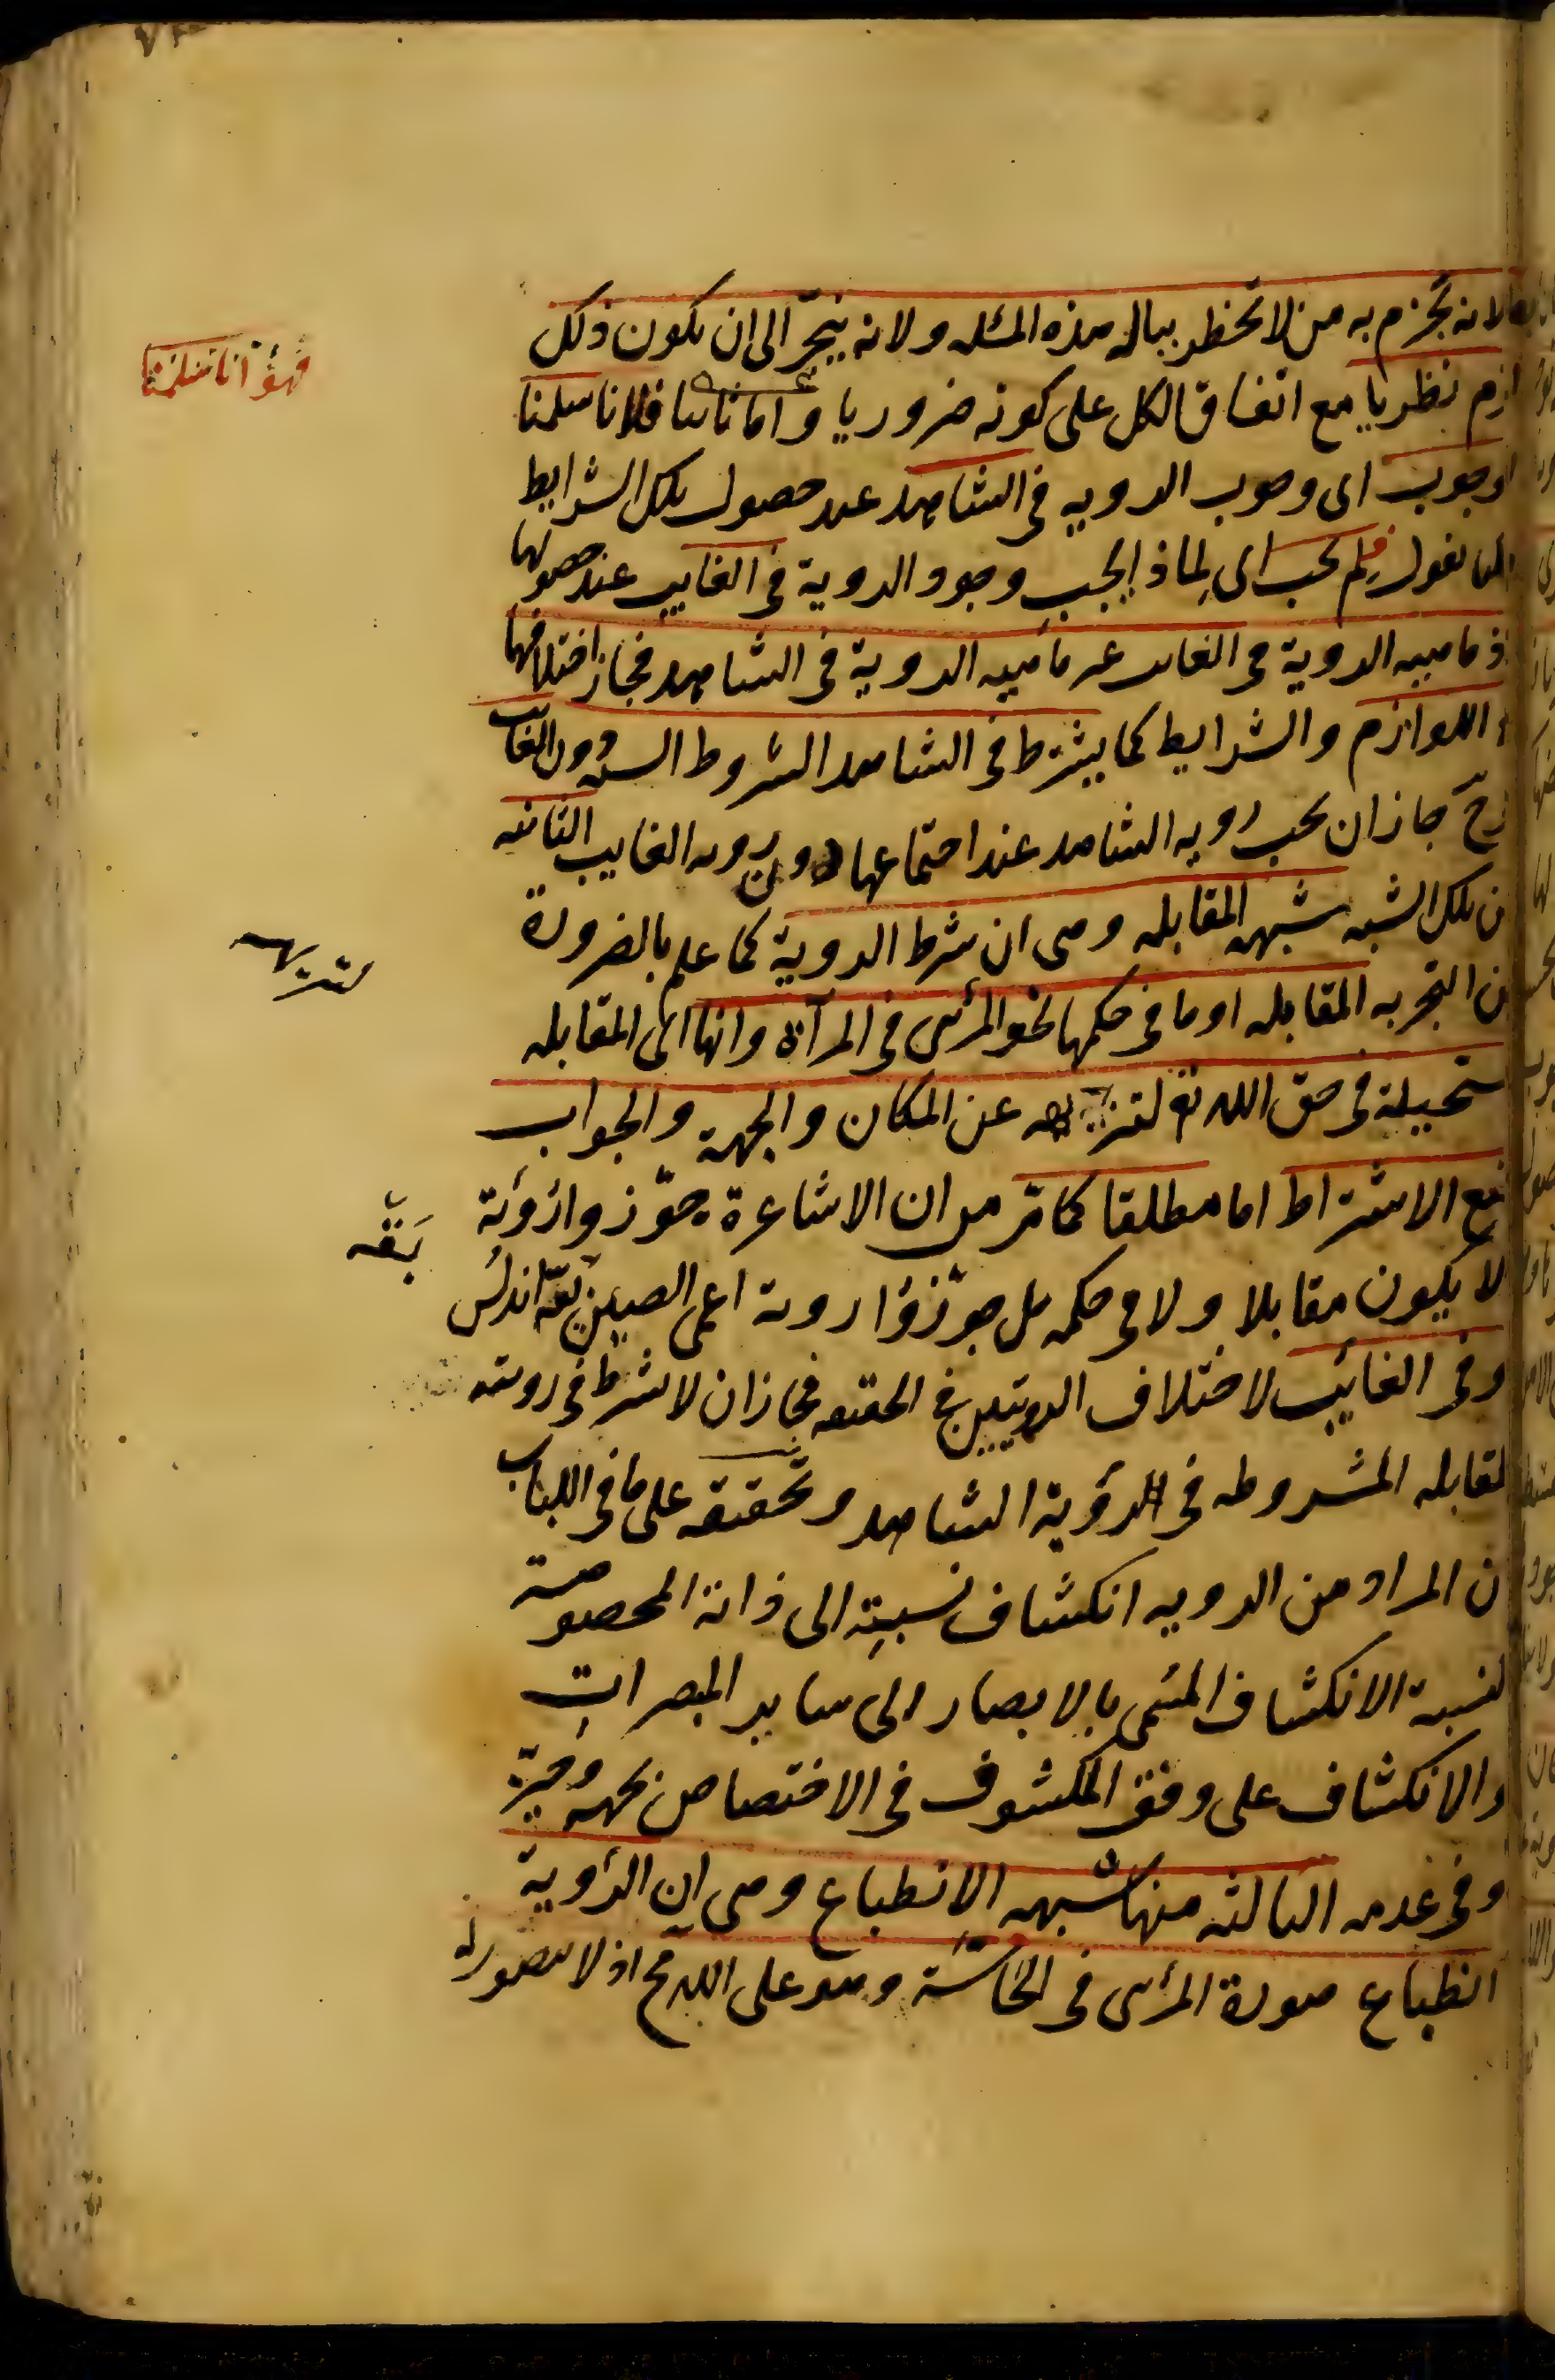 لانه يجزم به من لا يخطر بباله هذه المسئله ولانه ينجرّ الى ان يكون ذلك
نظريا مع اتفاق الكل على كونه ضروريا واما ثانيا فلانا سلمنا
فهؤ انا سلمنا
الوجوب اى وجوب الرويه فى الشاهد عند حصول تلك الشرايط
نقول فلم يجب اى لماذا يجب وجود الروية فى الغايب عند حصولها
اذ ماهيه الروية فى الغايب غير ماهيه الروية فى الشاهد فجاز اختلافهما
اللوازم والشرايط كما يشترط فى الشاهد الشروط الستة دون الغايب
وح جاز ان يجب رويه الشاهد عند اجتماعها دون رويه الغايب الثانيه
من تلك الشبه شبهه المقابله وهى ان شرط الروية كما علم بالضرورة
لتنزيهه
من التجربه المقابله او ما فى حكمها نحو المرئى فى المرآة وانها اى المقابله
مستحيلة فى حق الله تع لتنزيهه عن المكان والجهة والجواب
منع الاشتراط اما مطلقا كما مرّ من ان الاشاعرة جوّزوا رؤية
بَقّه
لا يكون مقابلا ولا فى حكمه بل جوّزوا روية اعمى الصين بقّة اندلس
وفى الغائب لاختلاف الرويتين فى الحقيقه فجاز ان لا يشرط فى رويته
المقابله المشروطه فى الرؤية الشاهد وتحقيقه على ما فى اللباب
ان المراد من الرويه انكشاف نسبته الى ذاته المخصوصة
كنسبة الانكشاف المسّمى بالابصار الى ساير المبصرات
والانكشاف على وفق المكشوف فى الاختصاص بجهه وحيّز
وفى عدمه الثالثه منها شبهه الانطباع وهى ان الرؤية
انطباع صورة المرئى فى الحاسّة وهو على الله مح اذ لا يتصور له